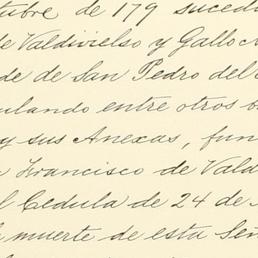 tubre de 179 sucedi
de Valdivielso y Gallo
de de San Pedro del
ulando entre otros b
y sus Anexas, fun
Francisco de Vald
l Cedula de 24 de
la muerte de esta Señ